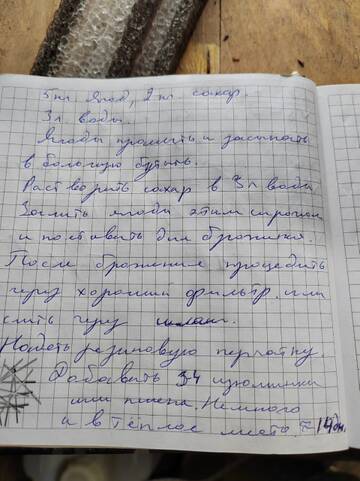 5кг ягод, 2кг сахар.
3л воды.
Ягоды промыть и засыпать
в большую бутыль.
Растворить сахар в 3л воды
Залить ягоды этим сиропом
и поставить для брожения.
После брожения процедить
через хороший фильтр. или
слить через шланг.
Надеть резиновую перчатку.
Добавить 3-4 изюминки
или пшена. Немного
и в тёплое место. ≈ 14 дн.